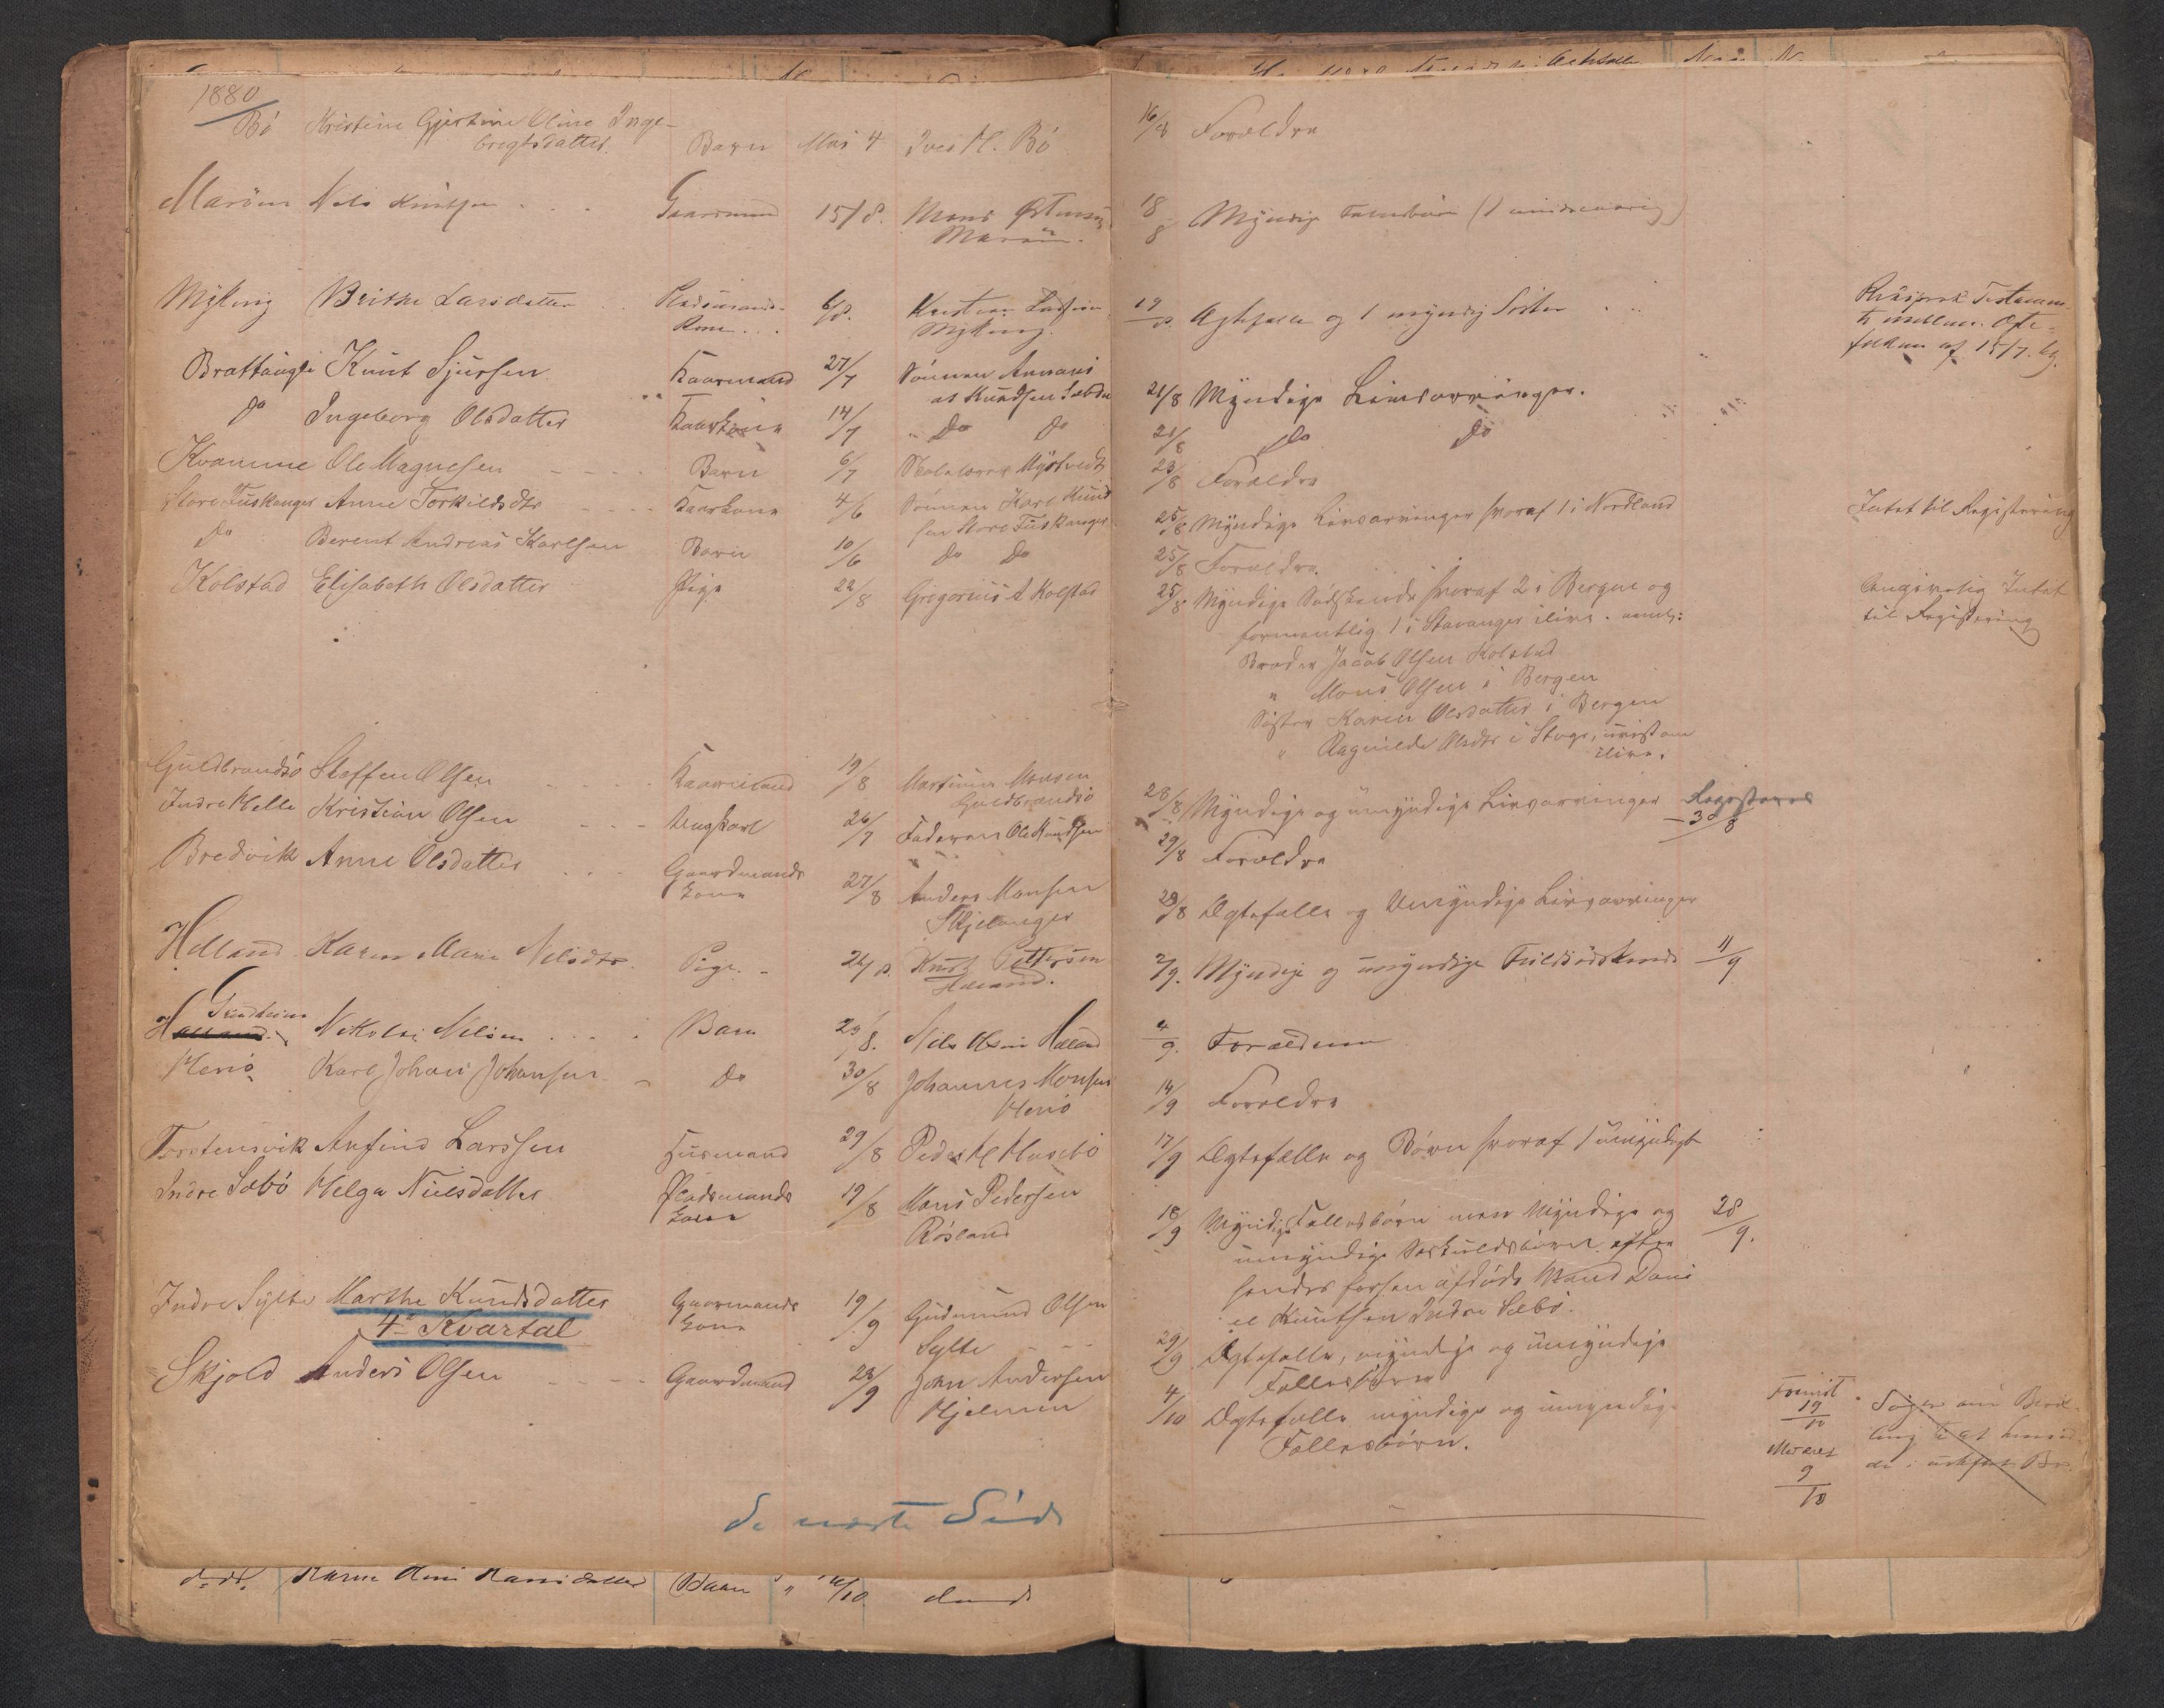 1880
Bö Kristine Gjertine Oline Inge-
bregtsdatter. Barn Mai 4 Iver H. Bö 16/8 Forældre
Marøen Nils Knutsen Gaardmand 15/8. Mons Østensen
Marøen. 18/8 Myndige Fællesbörn (1 mindreaarig)
Mÿking Brithe Larsdatter Pladsmands-
Kone 6/8. Kristian Larsen
Myking. 19/8. Ægtefælle og 1 myndig Söster
Resiprok Testamen-
te mellem Ægte-
folkene af 15/7.
Brattaugle Knut Sjursen Kaarmand 27/7 Sönnen Annanias
Knudsen Sæbdø 21/8 Myndige Livsarvinger.
do Ingeborg Olsdatter Kaarkone 14/7 " do do 21/8 do do
Kvamme Ole Magnesen Barn 6/7 Skolelærer Myhrtvedt 23/8 Forældre
Store Fuskanger Anne Torkildsdtr Kaarkone 4/6 Sönnen Karl Knud
sen Store Fuskanger 25/8 Myndige Livsarvinger hvoraf 1 i Nordland Intet til Registering
do Berent Andreas Karlsen Barn 10/6 do do 25/8 Forældre.
Kolstad Elisabeth Olsdatter Pige 22/8 Gregorius A Kolstad 25/8 Myndige Södskende hvoraf 2 i Bergen og
formentlig 1 i Stavanger ilive. nemlig:
Angivelig Intet
til Registering
Broder Jacob Olsen Kolstad
" Mons Olsen i Bergen
Söster Karen Olsdatter i Bergen
" Ragnilde Olsdtr i Stvgr, uvist om
ilive.
Guldbrandsö Steffen Olsen Kaarmand 19/8 Martinus Monsen
Guldbrandsö 28/8 Myndige og umyndige Livsarvinger Registeret
30/8
Indre Helle Kristian Olsen Ungkarl 26/7 Faderen Ole Knudsen 29/8 Forældre
Bredvik Anne Olsdatter Gaardmands
Kone 27/8 Anders Monsen
Skjelanger 29/8 Ægtefælle og Umyndige Livsarvinger
Helland Karen Marie Nilsdtr. Pige. 24/8. Knut Pettersen
Helland. 2/9. Myndige og umyndige Fuldsödskende 11/9
Grindheim
Nikolai Nilsen Barn 29/8. Nils Olsen Haland 4/9. Forældrene
Herö Karl Johan Johansen do 30/8 Johannes Monsen
Herö 14/9 Forældre
Torstensvik Anfind Larssen Husmand 29/8 Peder H Husebö 17/9 Ægtefælle og Börn hvoraf 1 umyndigt
Indre Sæbö Helga Nielsdatter Pladsmands
Kone 19/8 Mons Pedersen
Rösland 18/9 Myndige Fællesbörn men Myndige og 28/9.
umyndige Særkuldsbörn efter
hendes forhen afdöde Mand Dani
el Knutsen Indre Sæbö.
Indre Sylte Marthe Knudsdatter Gaardmands
Kone 19/9 Gudmund Olsen
Sylte 29/9 Ægtefælle, myndige og umyndige
Fællesbörn
4de Kvartal
Skjold Anders Olsen Gaardmand 28/9 John Andersen
Hjelmen 4/10 Ægtefælle myndige og umyndige
Fællesbörn.
19/10
9/10
Söger om Bevil-
ling til at hensid-
de i uskiftet Bo.
Se næste Side
do do. Karen Barn " 10 do